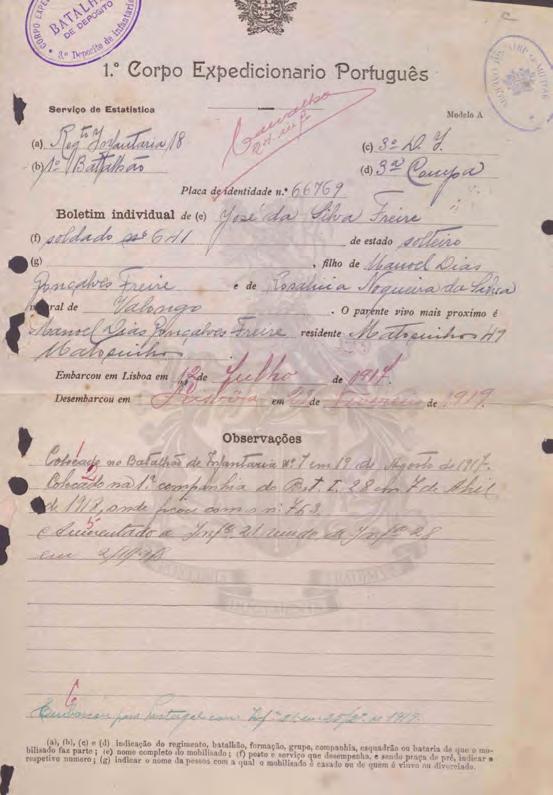 CORPO EXP
BATALH
DE DEPOSITO
3.º Deposito de Infantaria
1.º Corpo Expedicionario Português
Serviço de Estatistica
Modelo A
(a) Regto Infantaria 18
(c) 3ª D. I.
(b) 1º Batalhão
(d) 3ª Compa
Placa de identidade n.º 66769
Boletim individual de (e) José da Silva Freire
(f) soldado nº 641 de estado solteiro
(g) , filho de Manoel Dias
Gonçalves Freire e de Nogueira da Silva
natural de Valongo . O parente vivo mais proximo é
Manoel Dias Gonçalves Freire residente Matosinhos
Matosinhos
Embarcou em Lisboa em 12 de Julho de 1917
Desembarcou em Lisboa em de Fevereiro de 1919.
Observações
Colocado no Batalhão de Infantaria nº 7 em 19 de Agosto de 1917.
Colocado na 1ª companhia do B. I. 28 em 7 de Abril
de 1918, onde ficou com o nº 763.
a Infª. 21 vindo da Infª 28
em
Embarcou para Portugal com Infª de 1919.
(a), (b), (c) e (d) indicação do regimento, batalhão, formação, grupo, companhia, esquadrão ou bataria de que o mo-
bilisado faz parte ; (e) nome completo do mobilisado ; (f) posto e serviço que desempenha, e sendo praça de pré, indicar o
respetivo numero ; (g) indicar o nome da pessoa com a qual o mobilisado é casado ou de quem é viuvo ou divorciado.